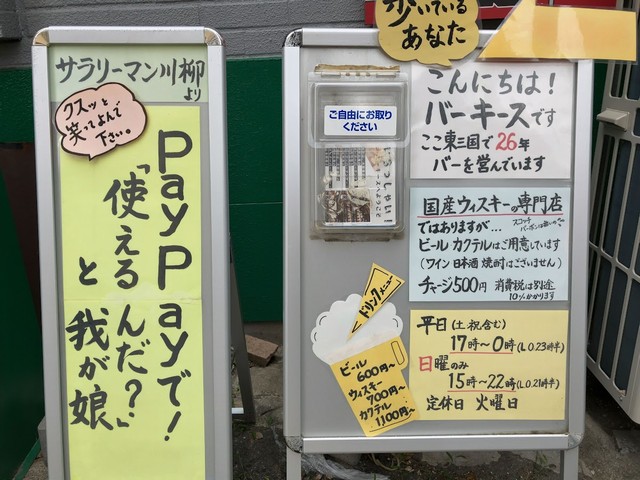 サラリーマン川柳
より
クスッと
笑ってよんで
下さい。
PayPayで!
「使えるんだ?」
と我が娘
歩いている
あなた
ご自由にお取り
ください
いらっしゃい!
こんにちは!
バーキースです
ここ東三国で26年
バーを営んでいます
国産ウィスキーの専門店
ではありますが…
ビール カクテルはご用意しています
(ワイン 日本酒 焼酎はございません)
チャージ500円 消費税は別途
10%かかります
ドリンクメニュー
ビール
600円~
ウィスキー
700円~
カクテル
1,100円~
平日(土祝含む)
17時~0時(L.O.23時半)
日曜のみ
15時~22時(L.O.21時半)
定休日 火曜日